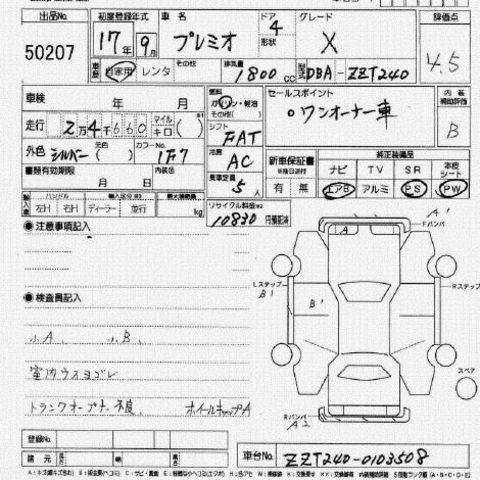 出品No.
50207
初度登録年式
17年 9月
車名
プレミオ
ドア 4
形状
グレード
X
評価点
4.5
車歴 自家用 レンタ その他
排気量
1800 CC
型式
DBA-ZZT240
車検 年 月
燃料
ガソリン・軽油
その他( )
セールスポイント
ワンオーナー車
内装
補助評価
B
走行 2万4千660 マイル キロ ( )
シフト
FAT
外色 シルバー
元色
( )
カラーNo.
1F7
内装色
冷房
AC
有効期限
月 日
乗車定員
5人
新車保証書
有 無
純正装備品
ナビ TV SR 本皮シート
エアB アルミ PS PW
輸入車
ハンドル
右H 左H
輸入区分
ディーラー 並行
最大積載量
kg
リサイクル料金
10830 円預託済
注意事項記入
A'
Fバンパ
A
Lステップ
B1
B'
Rステップ
検査員記入
小A 小B
室内ウスヨゴレ
スペア
トランクオープナー不良 ホイールキャップA
Rバンパ
A2
登録No.
諸元
車台No.
ZZT240-0103508